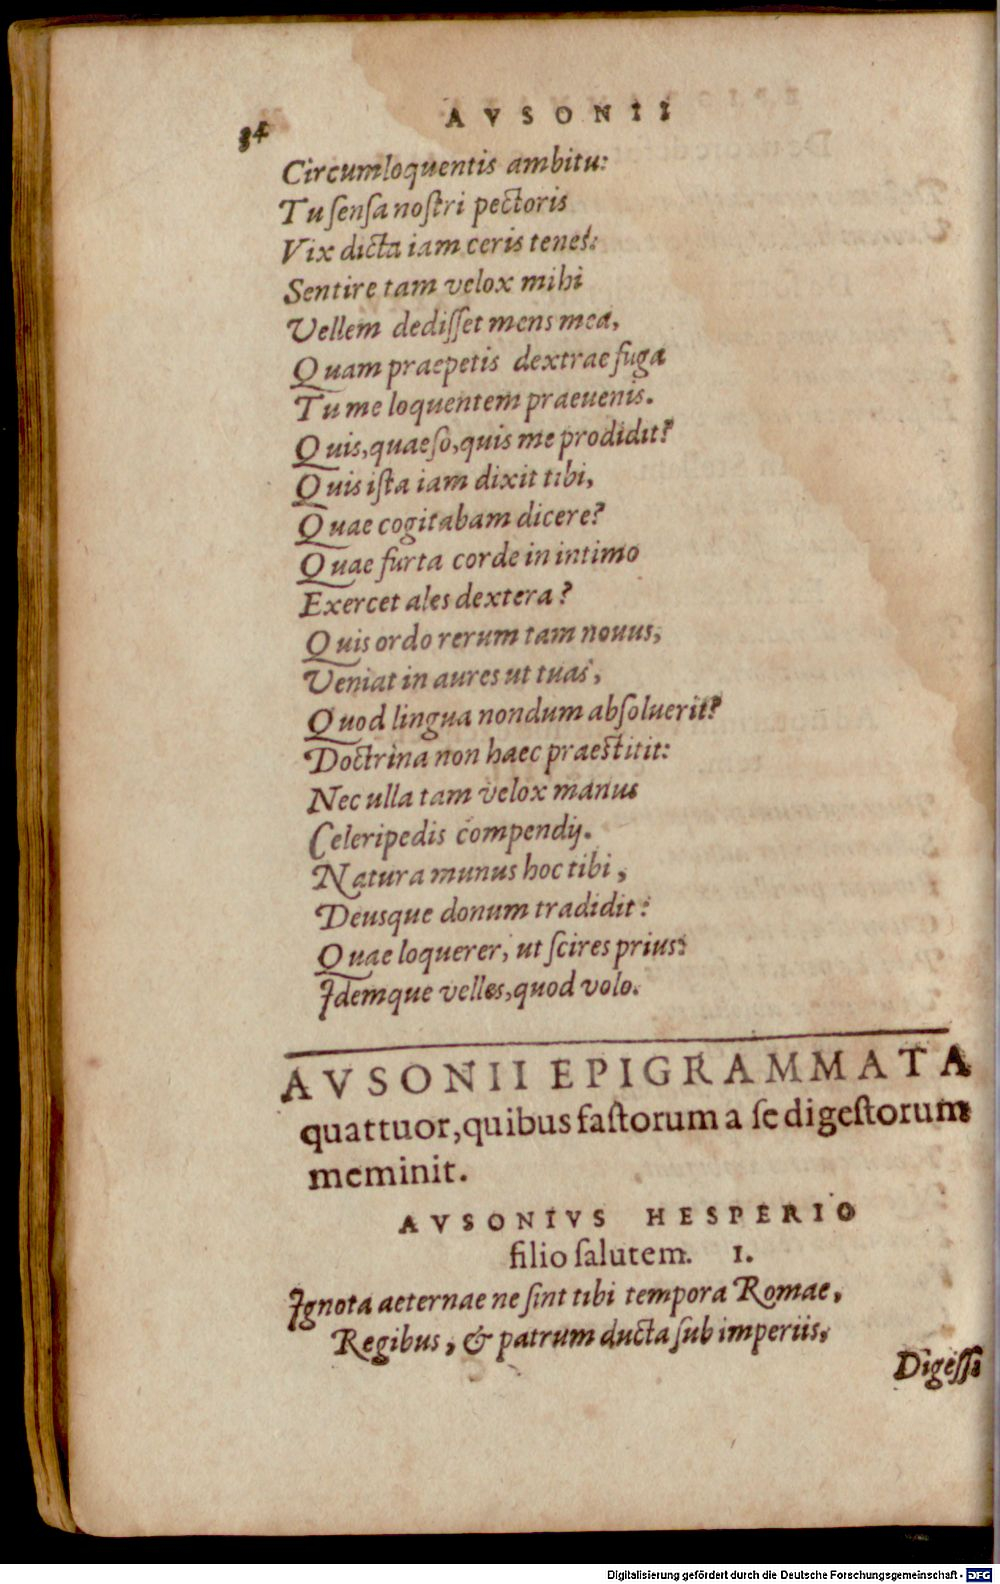 84
AVSONII
Circumloquentis ambitu:
Tu ſenſa noſtri pectoris
Vix dicta iam ceris tenes:
Sentire tam velox mihi
Vellem dediſſet mens mea,
Quam praepetis dextrae fuga
Tu me loquentem praeuenis.
Quis, quaeſo, quis me prodidit?
Quis iſta iam dixit tibi,
Quae cogitabam dicere?
Quae furta corde in intimo
Exercet ales dextera?
Quis ordo rerum tam nouus,
Veniat in aures ut tuas,
Quod lingua nondum abſoluerit?
Doctrina non haec praeſtitit:
Nec ulla tam velox manus
Celeripedis compendij.
Natura munus hoc tibi,
Deusque donum tradidit:
Quae loquerer, ut ſcires prius:
Idemque velles, quod volo.
AVSONII EPIGRAMMATA
quattuor, quibus faſtorum a ſe digeſtorum
meminit.
AVSONIVS HESPERIO
filio ſalutem. I.
Ignota aeternae ne ſint tibi tempora Romae,
Regibus, & patrum ducta ſub imperiis,
Digeſſi
Digitalisierung gefördert durch die Deutsche Forschungsgemeinschaft - DFG